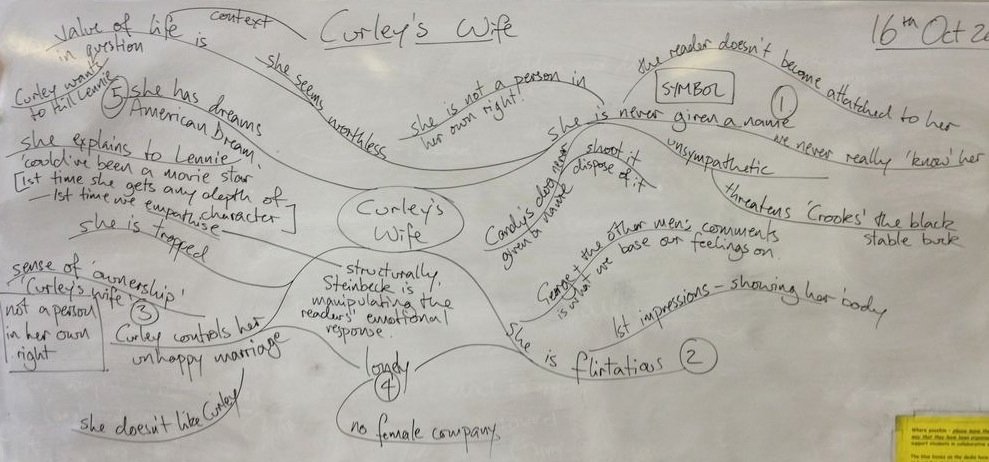 Curley's Wife
16th Oct
value of life is
in question
context
Curley wants
to kill Lennie
she seems worthless
she is not a person in
her own right!
the reader doesn't become attatched to her
SYMBOL
1
she is never given a name
we never really 'know' her
unsympathetic
threatens 'Crooks' the black
stable buck
shoot it
dispose of it
Candy's dog never
given a name
5 she has dreams
American Dream.
she explains to Lennie
'could've been a movie star'
[1st time she gets any depth of
character]
— 1st time we empathise
she is trapped
Curley's
Wife
structurally
Steinbeck is
manipulating the
readers' emotional
response.
George & the other men's comments
is what we base our feelings on
1st impressions - showing her body
she is flirtatious 2
sense of 'ownership'
'Curley's wife'
3
not a person
in her own
right
Curley controls her
unhappy marriage
she doesn't like Curley
lonely
4
no female company
Where possible - please leave the
way that they have been
support students in collaborative
The blue boxes on the desks have